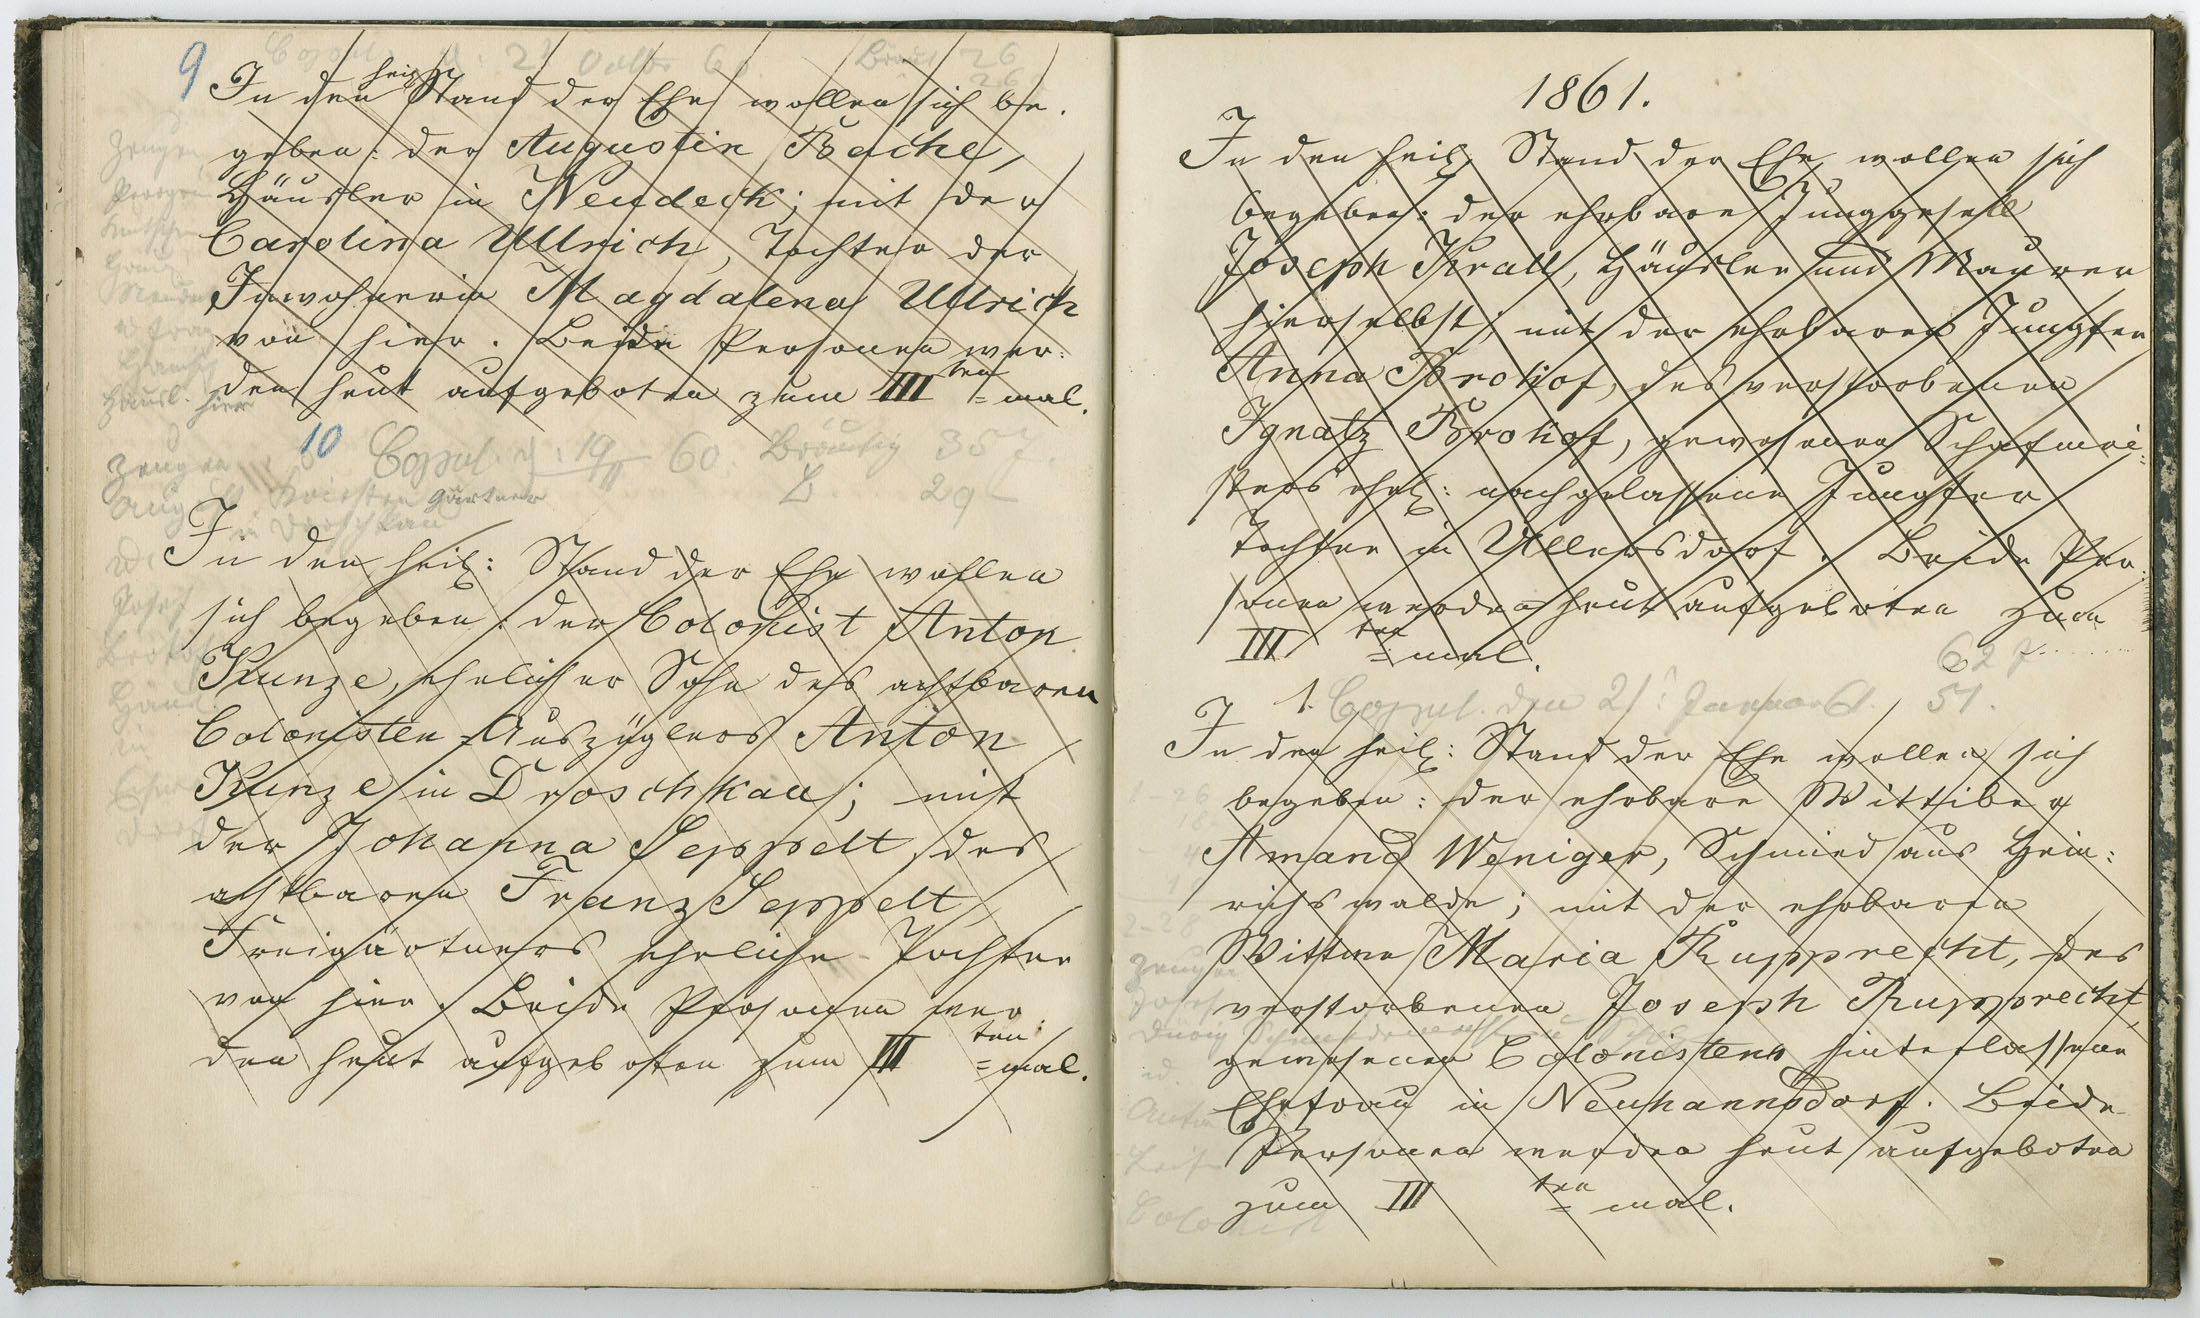 9
In den heil: Stand der Ehe wollen sich be.
geben: der Augustin Bache,
Häusler in Neudeck; mit der
Carolina Ullrich, Tochter der
Inwohnerin Magdalena Ullrich
von hier. Beide Personen wer:
den heut aufgeboten zum III ten =mal.
10 Copul. d: 19/11 60. Bräutig 35 J.
29
Zeugen
Gärtner
in Droschkau
In den heil: Stand der Ehe wollen
sich begeben: der Colonist Anton
Kunze, ehelicher Sohn des achtbaren
Colonisten-Auszüglers Anton
Kunze in Droschkau; mit
der Johanna Seppelt, des
achtbaren Franz Seppelt,
Freigärtners eheliche Tochter
von hier. Beide Personen wer:
den heut aufgeboten zum III ten =mal.
1861.
In den heil: Stand der Ehe wollen sich
begeben: der ehrbare Junggesell
Joseph Krall, Häusler und Maurer
hierselbst; mit der ehrbaren Jungfer
Anna Brokof, des verstorbenen
Ignatz Brokof, gewesenen Schafmei:
sters ehel: nachgelassene Jungfer
Tochter in Ullersdorf. Beide Per:
sonen werden heut aufgeboten zum
III ten =mal.
62 J
1. Copul. den 21: Januar 61. 51.
In den heil: Stand der Ehe wollen sich
begeben: der ehrbare Wittiber
Amand Weniger, Schmied aus Hein:
richswalde; mit der ehrbaren
Wittwe Maria Rupprecht, des
verstorbenen Joseph Rupprecht,
gewesenen Colonistens hinterlassene
Ehefrau in Neuhannsdorf. Beide
Personen werden heut aufgeboten
zum III ten = mal.